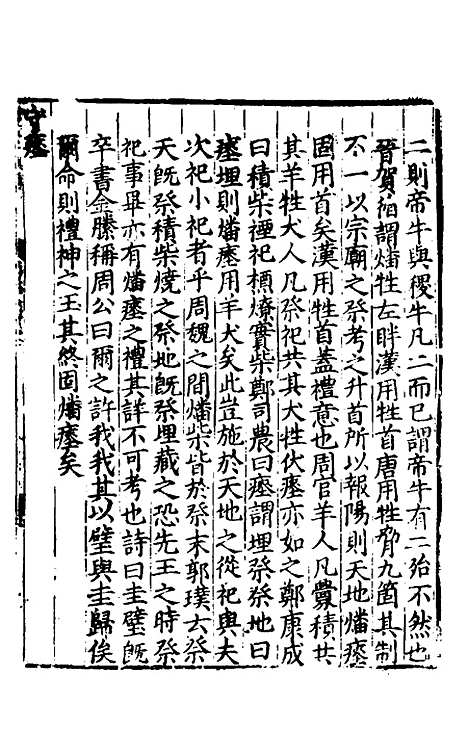 二則帝牛與稷牛凡二而已謂帝牛有二殆不然也
晉賀循謂燔牲左胖漢用牲首唐用牲脅九箇其制
不一以宗廟之祭考之升首所以報陽則天地燔瘞
固用首矣漢用牲首蓋禮意也周官羊人凡釁積共
其羊牲犬人凡祭祀共其犬牲伏瘞亦如之鄭康成
曰積柴禋祀槱燎實柴鄭司農曰瘞謂埋祭祭地曰
瘞埋則燔瘞用羊犬矣此豈施於天地之從祀與夫
次祀小祀者乎周魏之間燔柴皆於祭末郭璞云祭
天旣祭積柴燒之祭地旣祭埋藏之恐先王之時祭
祀事畢亦有燔瘞之禮其詳不可考也詩曰圭璧旣
卒書金縢稱周公曰爾之許我我其以璧與圭歸俟
爾命則禮神之玉其終固燔瘞矣
守瘞